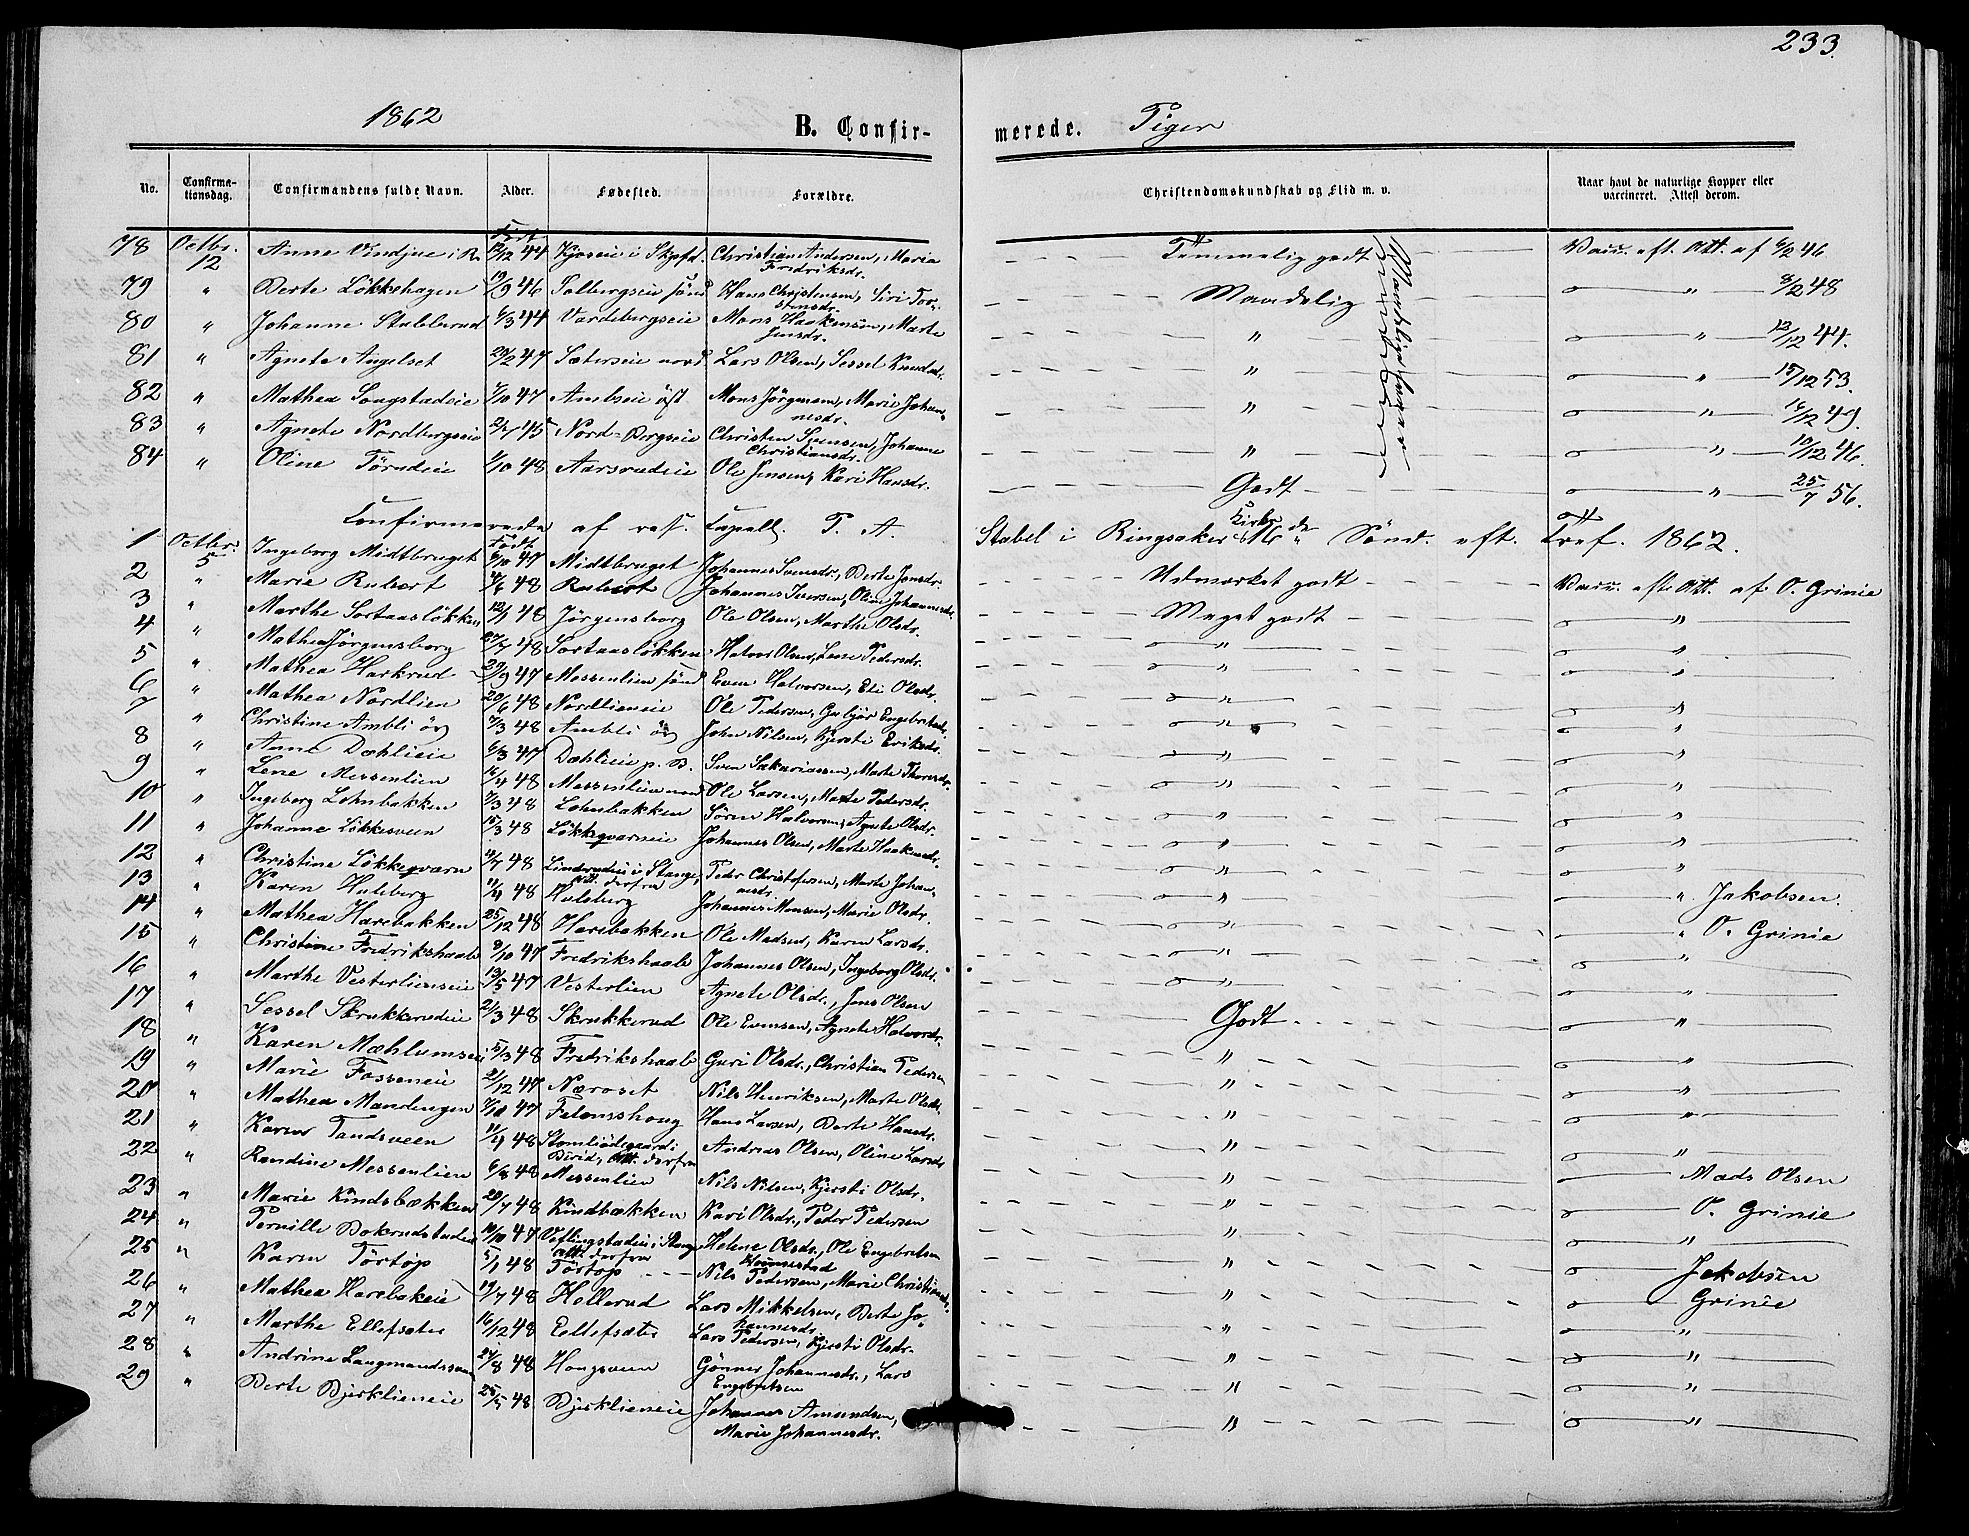 233
1862
B. Confir-
merede. Piger
No. Confirma-tionsdag. Confirmandens fulde Navn. Alder. Fødested. Forældre. Christendomskundskab og Flid m. v. Naar havt de naturlige Kopper eller vaccineret. Attest derom.
Født
78 Octbr. 12 Anne 12/12 44 Christian Andersen, Maria Fredriksdr. Temmelig godt Vacc. eft. Att. af 6/2 46
79 " Berte Løkkehagen 19/9 46 Tolbergseie sønd Hans Christensen, Siri Tor-stensdr. Maadelig " 8/2 48
80 " Johanne Stubberud 6/3 44 Vardebergseie Mons Haakensen, Marte Jensdr. " " 13/12 44.
81 " Agnete Angelset 20/2 47 Sæterseie nord Lars Olsen, Sessel Knudsdr. " " 15/12 53.
82 " Mathea Songstadeie 7/10 47 Ambseie øst Mons Jørgensen, Marie Johan-nesdr. " " 16/12 49.
83 " Agnete Nordbergseie 2/7 45 Nord-Bergseie Christen Svensen, Johanne Christiansdr. " " 10/12 46.
84 " Oline Tørudeie 1/10 48 Aarsrudeie Ole Jensen, Kari Hansdr. Godt " 25/7 56.
Confirmerede af res. Capell. P. A. Stabel i Ringsaker Kirke 16de Sønd. eft. Tref. 1862.
Født
1 Octbr. 5 Ingeborg Midtbruget 6/10 47 Midtbruget Johannes Svensdr., Berte Jonsdr. Udmærket godt Vacc. eft. Att. af O. Grinie
2 " Marie Rubert 4/6 48 Rubert Johannes Iversen, Oline Johannesdr. Meget godt "
3 " Marthe Sortaasløkken 12/1 48 Jørgensborg Ole Olsen, Marthe Olsdr. " "
4 " Mathea Jørgensborg 27/7 48 Sortaasløkken Halvor Olsen, Lene Pedersdr. " "
5 " Mathea Harkrud 29/9 47 Messenlien sønd Even Halvorsen, Eli Olsdr. " "
6 " Mathea Nordlien 20/6 48 Nordlieneie Ole Pedersen, Gubjør Engebretsdr. " "
7 " Christine Ambli øv 7/3 48 Ambli øv John Nilsen, Kjersti Eriksdr. " "
8 " Anne Dæhlieie 6/3 47 Dæhlieie p. B. Sven Sakariassen, Marte Thoresdr. " "
9 " Lene Messenlien 16/4 48 Messenlien nord Ole Larsen, Marte Pedersdr. " "
10 " Ingeborg Lohnbakken 7/3 48 Lohnbakken Søren Halvorsen, Agnete Olsdr. " "
11 " Johanne Løkkesveen 15/3 48 Løkkeqvarneie Johannes Olsen, Marte Haakensdr. " "
12 " Christine Løkkeqværn 11/7 48 Linderudeie i Stange, Att. derfra Peder Christofersen, Marte Johan-nesdr. " " Jakobsen.
13 " Karen Huleberg 11/4 48 Huleberg Johannes Monsen, Marie Olsdr. " " O. Grinie
14 " Mathea Harebakken 25/12 48 Harebakken Ole Madsen, Karen Larsdr. " "
15 " Christine Fredrikshaab 8/10 47 Fredrikshaab Johannes Olsen, Ingeborg Olsdr. " "
16 " Marthe Vesterlienseie 13/5 47 Vesterlien Agnete Olsdr., Jens Olsen Godt "
17 " Sessel Skrukkerudeie 21/3 48 Skrukkerud Ole Evensen, Agnete Halvorsdr. " "
18 " Karen Mæhlumseie 5/3 48 Fredrikshaab Guri Olsdr., Christian Pedersen " "
19 " Marie Fosseneie 21/12 47 Næroset Nils Henriksen, Marte Olsdr. " "
20 " Mathea Mandengen 7/10 47 Hans Larsen, Berte Hansdr. " "
21 " Karen Tandsveen 11/4 48 Stomliødegaard i Birid, Att. derfra Andreas Olsen, Oline Larsdr. " Mads Olsen
22 " Rondine Messenlien 6/8 48 Messenlien Nils Nilsen, Kjersti Olsdr. " O. Grinie
23 " Marie Kindsbækken 28/7 48 Kindbækken Kari Olsdr., Peder Pedersen " "
24 " Pernille Bokrudstadeie 10/10 47 Veflingstadeie i Stange Att. derfra Helene Olsdr., Ole Engebretsen Hommestad " " Jakobsen
25 " Karen Tørtop 5/1 48 Tørtop Nils Pedersen, Marie Christiansdr. " " Grinie
26 " Mathea Harebakeie 19/7 48 Hellerud Lars Mikkelsen, Berte Jo-hannesdr. " "
27 " Marthe Ellefsæter 16/12 48 Ellefsæter Lars Pedersen, Kjersti Olsdr. " "
28 " Andrine Langmandssveen 24/8 48 Haugsveen Gønner Johannesdr., Lars Engebretsen " "
29 " Berte Bjerklieneie 25/5 48 Bjerklieneie Johannes Amundsen, Marie Johannesdr. " "